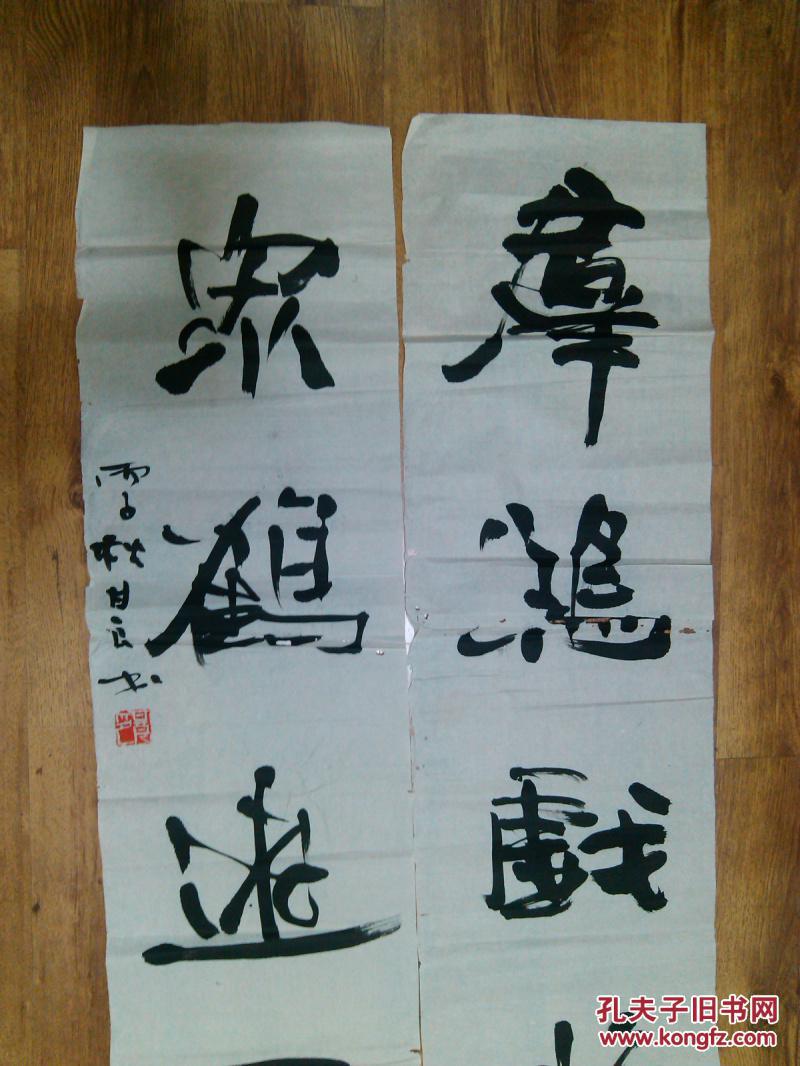 羣鴻戲
眾鶴遊
丙子秋甘良书
孔夫子旧书网
www.kongfz.com